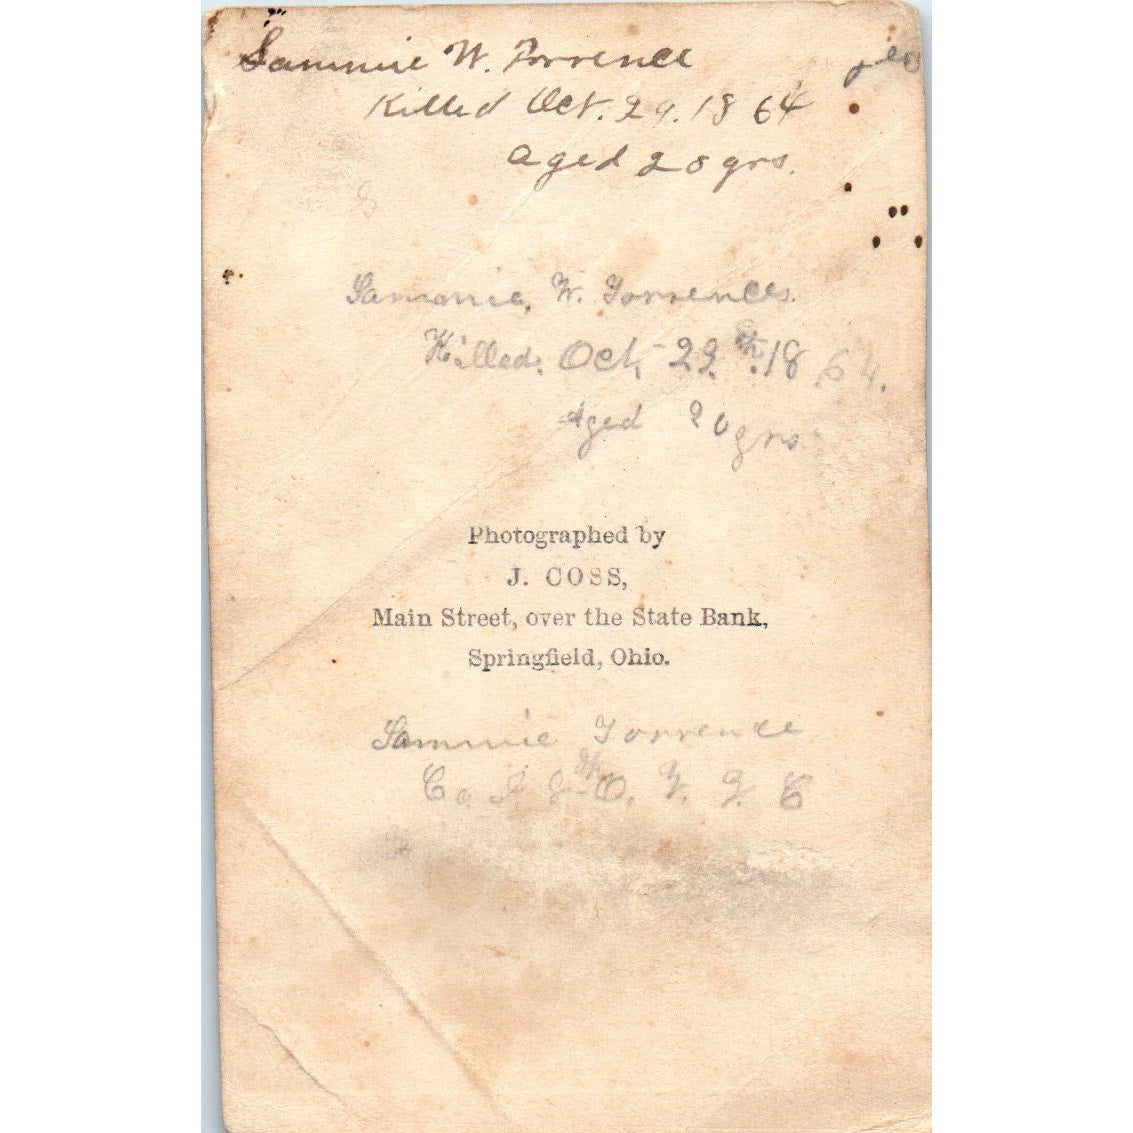 Sammie W. Torrence
Killed Oct. 29. 1864
aged 20 yrs.
Sammie, W. Torrences.
Killed. Oct 22nd. 1864.
Aged 20 yrs.
Photographed by
J. COSS,
Main Street, over the State Bank,
Springfield, Ohio.
Sammie Torrence
Co A 8th O. V. I. C